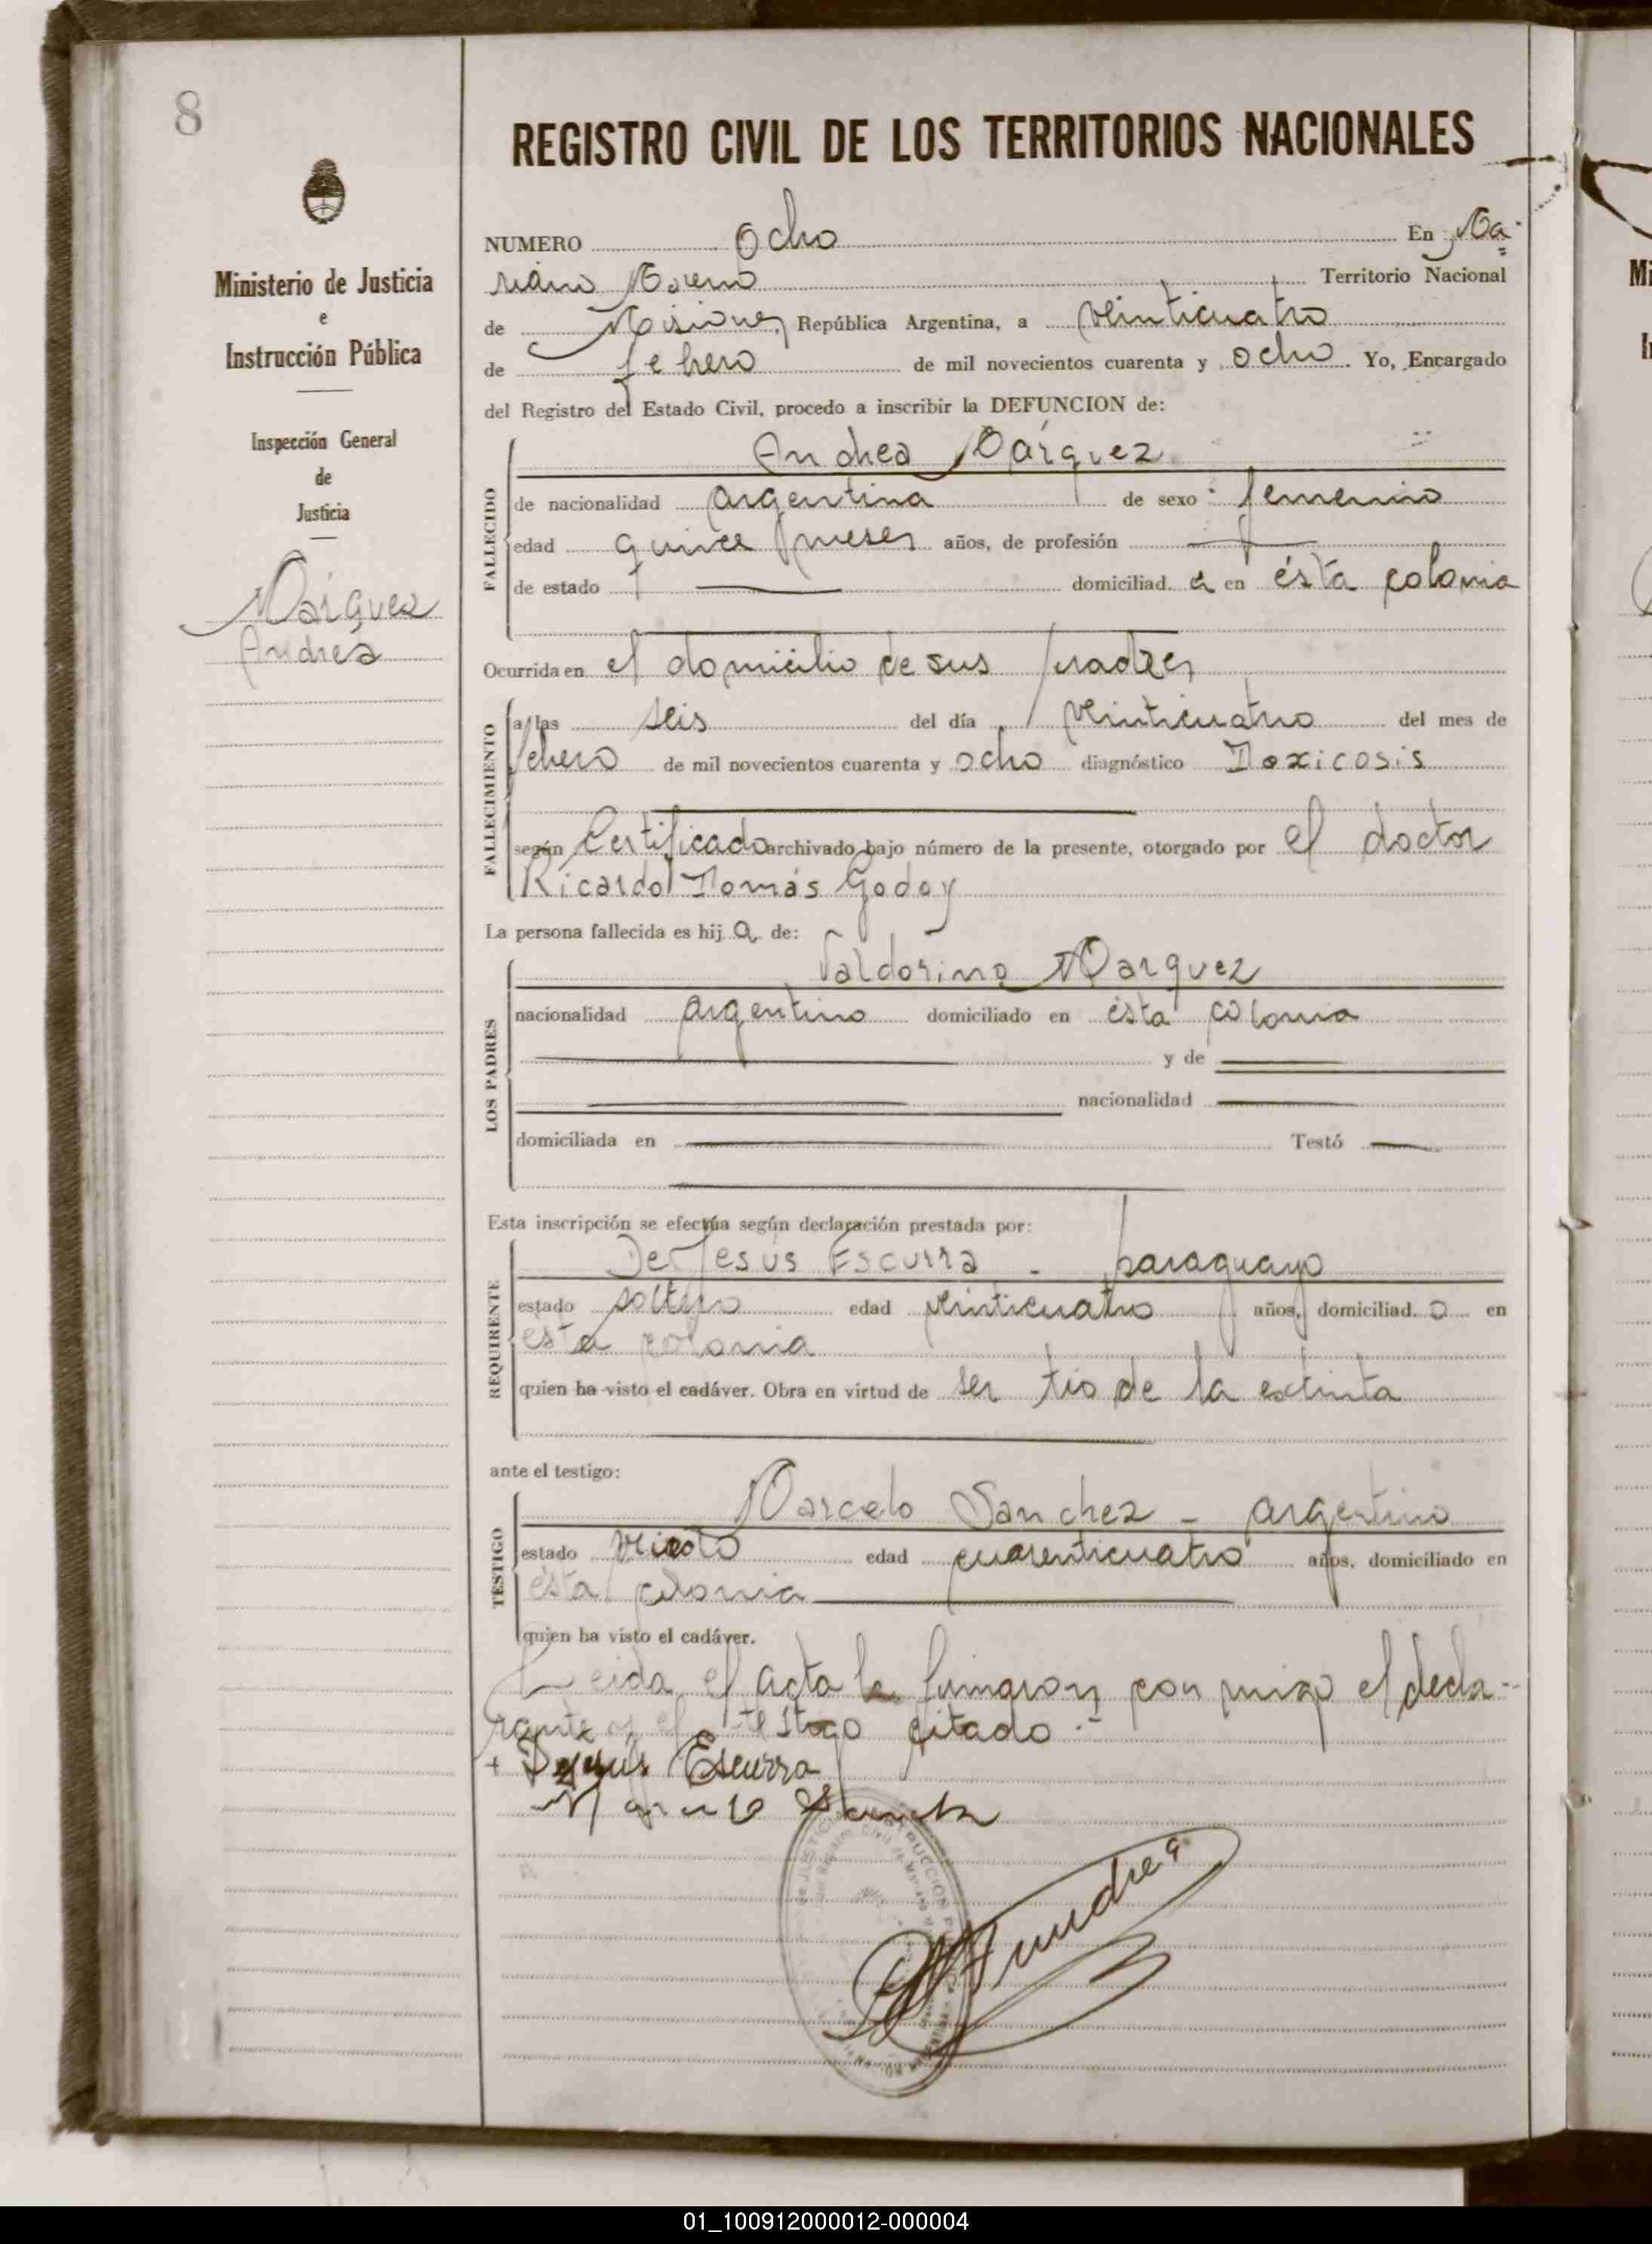 8
REGISTRO CIVIL DE LOS TERRITORIOS NACIONALES
Ministerio de Justicia
e
Instrucción Pública
Inspección General
de
Justicia
Márquez
Andrea
NUMERO Ocho En Ma-
riano Moreno Territorio Nacional
de Misiones, República Argentina, a veinticuatro
de febrero de mil novecientos cuarenta y ocho. Yo, Encargado
del Registro del Estado Civil, procedo a inscribir la DEFUNCION de:
FALLECIDO
Andrea Márquez
de nacionalidad argentina de sexo femenino
edad quince meses años, de profesión
de estado domiciliad. a en ésta colonia
Ocurrida en el domicilio de sus padres
FALLECIMIENTO
a las seis del día veinticuatro del mes de
febrero de mil novecientos cuarenta y ocho diagnóstico Toxicosis
según Certificado archivado bajo número de la presente, otorgado por el doctor
Ricardo Tomás Godoy
La persona fallecida es hij a de:
LOS PADRES
Valdorino Marquez
nacionalidad argentino domiciliado en ésta colonia
y de
nacionalidad
domiciliada en Testó
Esta inscripción se efectúa según declaración prestada por:
REQUIRENTE
De Jesús Escurra - paraguayo
estado soltero edad veinticuatro años, domiciliad. o en
esta colonia
quien ha visto el cadáver. Obra en virtud de ser tio de la extinta
ante el testigo:
TESTIGO
Marcelo Sanchez - argentino
estado edad cuarenticuatro años, domiciliado en
ésta colonia
quien ha visto el cadáver.
Leida el acta la firmaron con migo el decla-
rante y el testigo citado.-
+ Dejesús Escurra
01_100912000012-000004